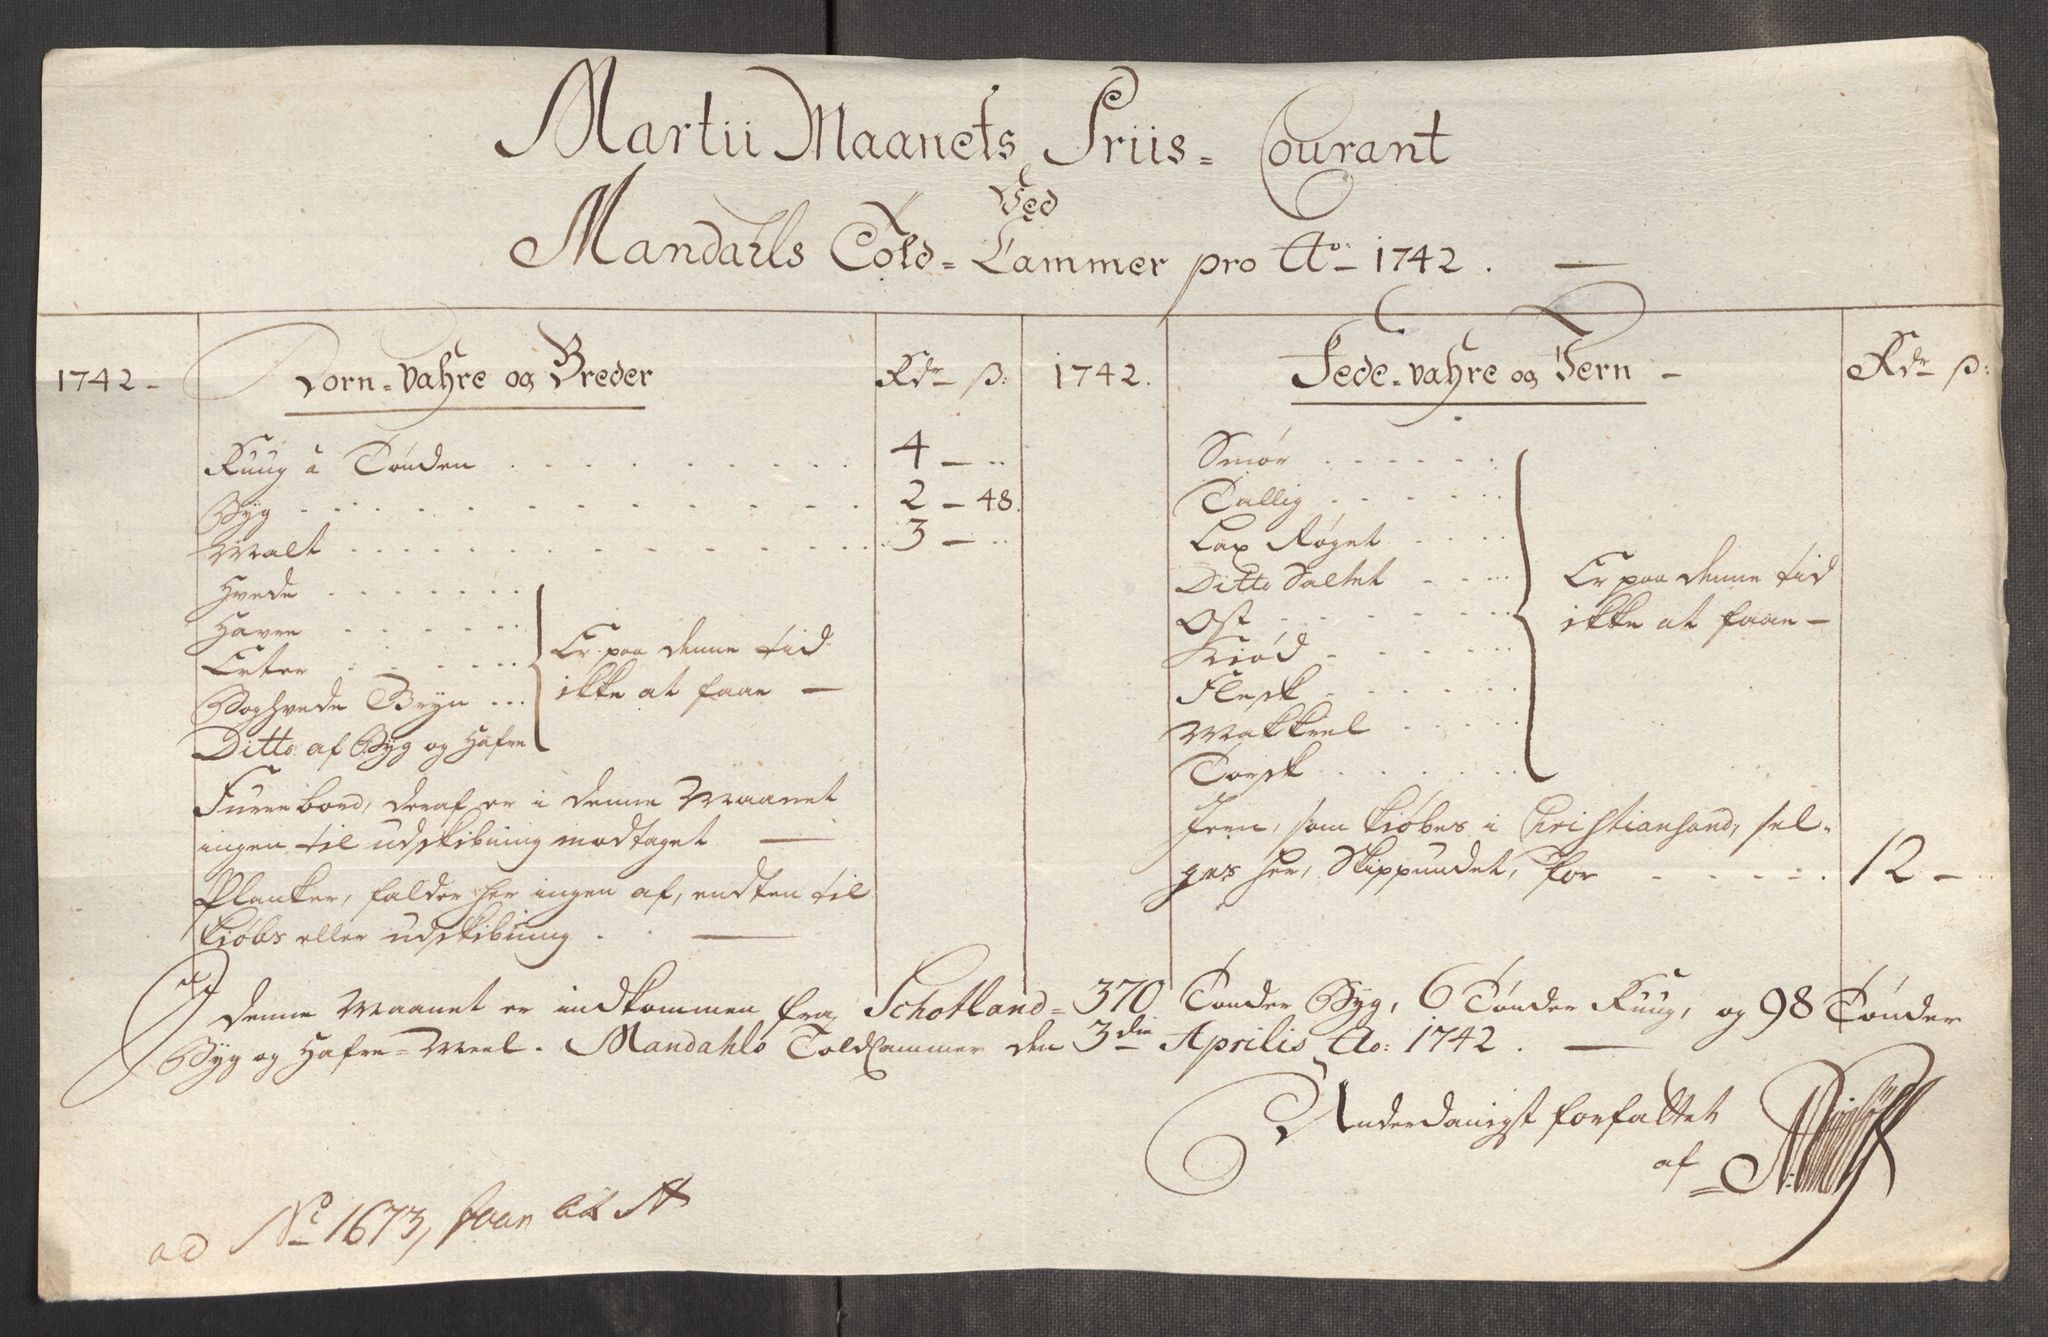 Martii Maanets Priis = Courant
Ved
Mandahls Told = Cammer pro Ao 1742.
1742 -
Korn = Vahre og Breder
Rdr ß:
Ruug a Tønden . . . 4 - ..
Byg . . . 2 - 48.
Malt . . . 3 - ..
Hvede . . .
Havre . . .
Erter . . .
Boghvede Gryn ...
Ditto af Byg og Hafre
Er paa denne tid
ikke at faae -
Furrebord, deraf er i denne Maanet
ingen til udskibning modtaget
Planker, falder her ingen af, endten til
kiøbs eller udskibning . .
1742.
Fede = vahre og Jern -
Rdr ß:
Smør . . .
Tallig . . .
Lax Røget . . .
Ditto Saltet . . .
Ost . . .
Kiød . . .
Flesk . . .
Makkrel . . .
Torsk . . .
Er paa denne tid
ikke at faae -
Jern, som kiøbes i Christiansand, sel-
ges her, Skippundet, for . . . 12 - ..
J denne Maanet er indkommen fra Schotland = 370 Tønder Byg, 6 Tønder Ruug, og 98 Tønder
Byg og Hafre = Meel. Mandahls ToldCammer den 3die Aprilis Ao: 1742.
Underdanigst forfattet
af =
ad No 1673,